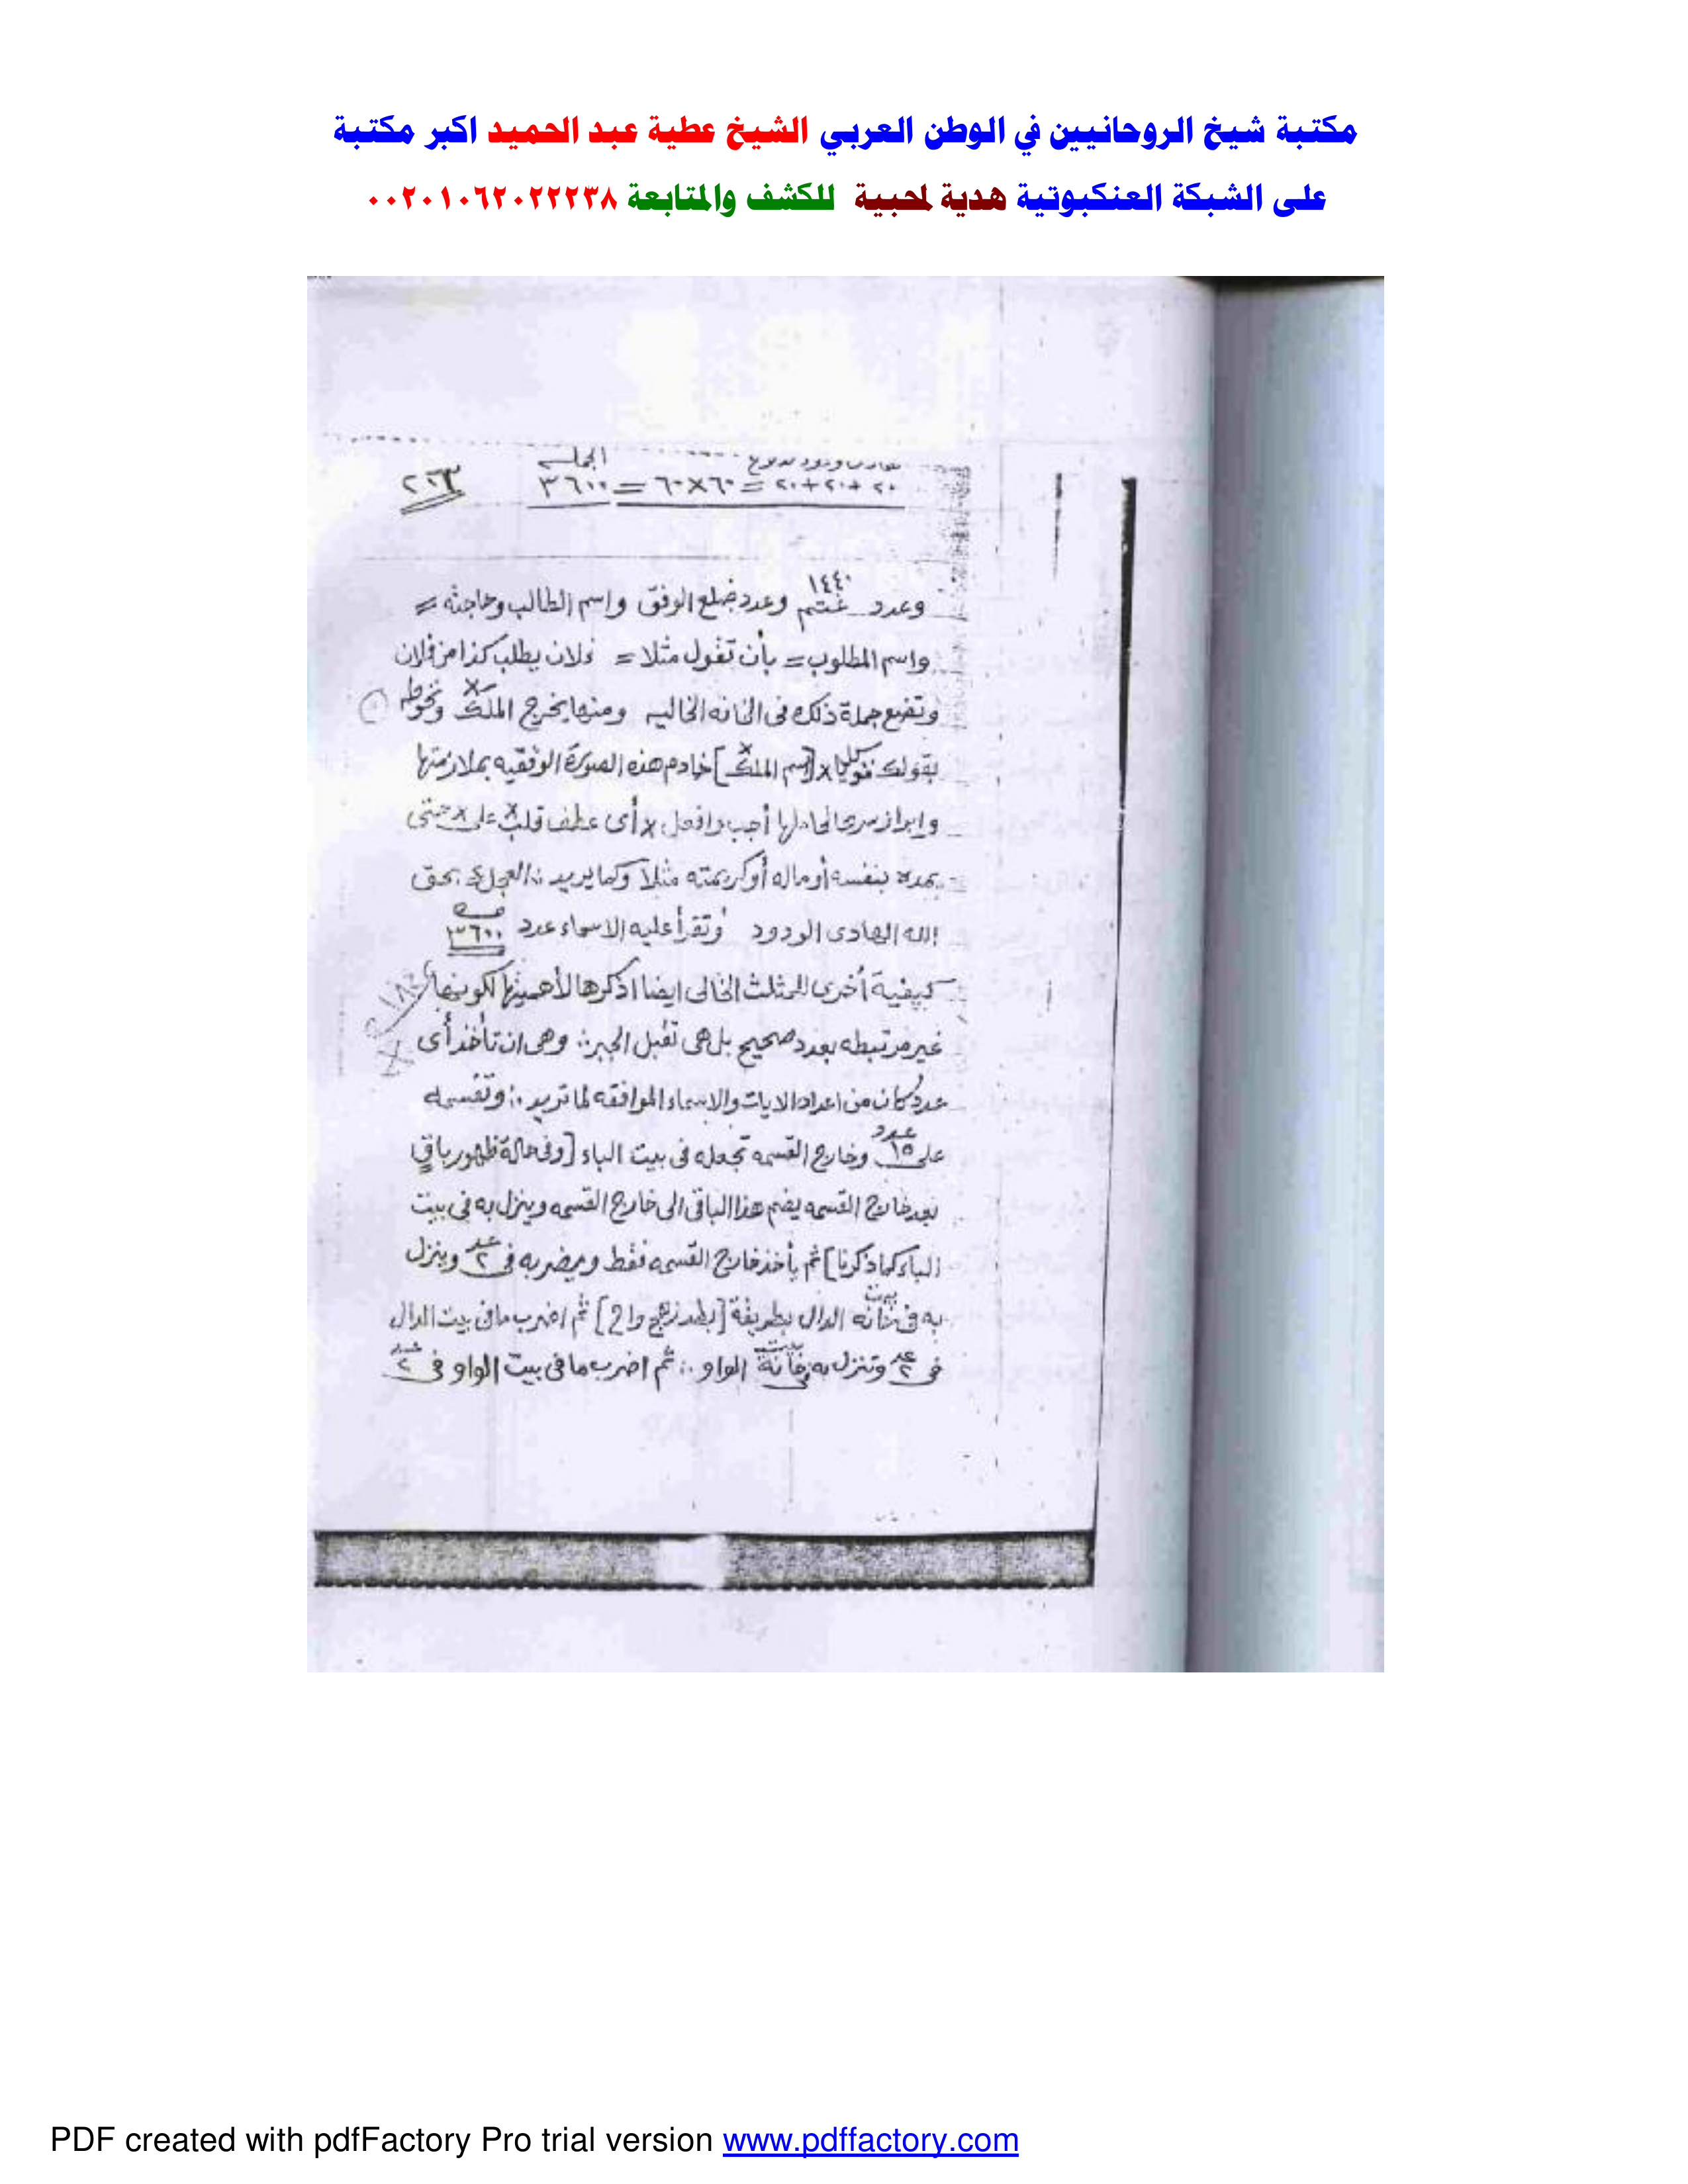 مكتبة شيخ الروحانيين في الوطن العربي الشيخ عطية عبد الحميد اكبر مكتبة
على الشبكة العنكبوتية هدية لمحبية للكشف والمتابعة ٠٠٢٠١٠٦٢٠٢٢٢٣٨
الجملة
٢٠+٢٠+٢٠ = ٦٠×٦٠ = ٣٦٠٠
٢٦٣
١٤٤٠
وعدد غتم وعدد ضلع الوفق واسم الطالب وحاجته =
واسم المطلوب = بأن تقول مثلا = فلان يطلب كذا من فلان
وتضع جملة ذلك فى الخانه الخاليه ومنها يخرج الملك وتحوطه
بقولك توكل يا x [اسم الملك] خادم هذه الصورة الوفقيه بملازمتها
وابراز سرها لحاملها أجب وافعل x أى عطف قلب x على x حتى
يمده بنفسه أو ماله أو كريمته مثلا وكما يريد ∴ العجل بحق
الله الهادى الودود وتقرأ عليه الاسماء عدد ٣٦٠٠
كيفية أخرى للمثلث الخالى ايضا اذكرها لأهميتها لكونها
غير مرتبطه بعدد صحيح بل هى تقبل الجبر ∴ وهى ان تأخذ أى
عدد كان من اعداد الايات والاسماء الموافقه لما تريد ∴ وتقسمه
على عدد ١٥ وخارج القسمه تجعله فى بيت الباء [وفى حالة ظهور باقٍ
بعد خارج القسمه يضم هذا الباقى الى خارج القسمه وينزل به فى بيت
الباء كما ذكرنا] ثم يأخذ خارج القسمه فقط ويضربه فى عدد ٢ وينزل
به فى خانه بيت الدال بطريقة [بطد زهج واح] ثم اضرب ما فى بيت الدال
فى عدد ٢ وتنزل به فى خانة بيت الواو ∴ ثم اضرب ما فى بيت الواو فى عدد ٢
PDF created with pdfFactory Pro trial version www.pdffactory.com